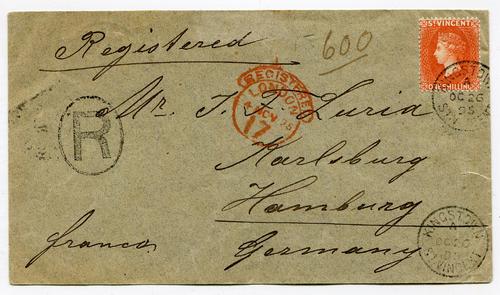 Registered
600
ST VINCENT
ONE SHILLING
REGISTERED
LONDON
17
R
Mr. T. F. Luria
Karlsburg
Hamburg
Germany
franco
KINGSTOWN
A
OC 26
95
ST VINCENT
KINGSTOWN
A
OC 26
ST VINCENT